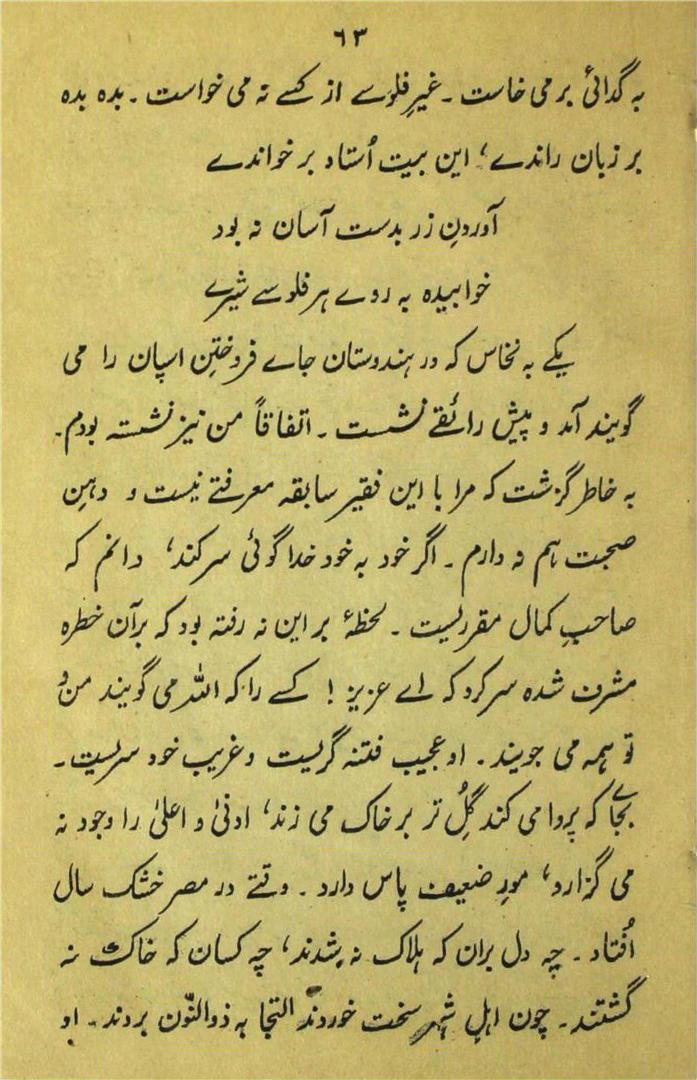 ۶۳
به گدائی بر می خاست ـ غیرِ فلوسے از کسے نہ می خواست ـ بدہ بدہ
بر زبان راندے، این بیت اُستاد بر خواندے
آوردنِ زر بدست آسان نہ بود
خوابیدہ بہ روے ہر فلوسے شیرے
یکے بہ نخاس کہ در ہندوستان جاے فروختنِ اسپان را می
گویند آمد و پیش رائقے نشست ـ اتفاقاً من نیز نشستہ بودم ـ
بہ خاطر گزشت کہ مرا با این فقیر سابقہ معرفتے نیست و دہنِ
صحبت ہم نہ دارم ـ اگر خود بہ خود خدا گوئی سر کند، دانم کہ
صاحبِ کمال مقرریست ـ لحظۂ بر این نہ رفتہ بود کہ برآن خطرہ
مشرف شدہ سر کرد کہ اے عزیز ! کسے را کہ اللہ می گویند من و
تو ہمہ می جویند ـ او عجیب فتنہ گریست و غریب خود سریست ـ
بجاے کہ پروا می کند گلِ تر بر خاک می زند، ادنیٰ و اعلیٰ را وجود نہ
می گزارد، مورِ ضعیف پاس دارد ـ وقتے در مصر خشک سال
اُفتاد ـ چہ دل بران کہ ہلاک نہ شدند، چہ کسان کہ خاک نہ
گشتند ـ چون اہلِ شہر سخت خوردند التجا بہ ذوالنّون بردند ـ او